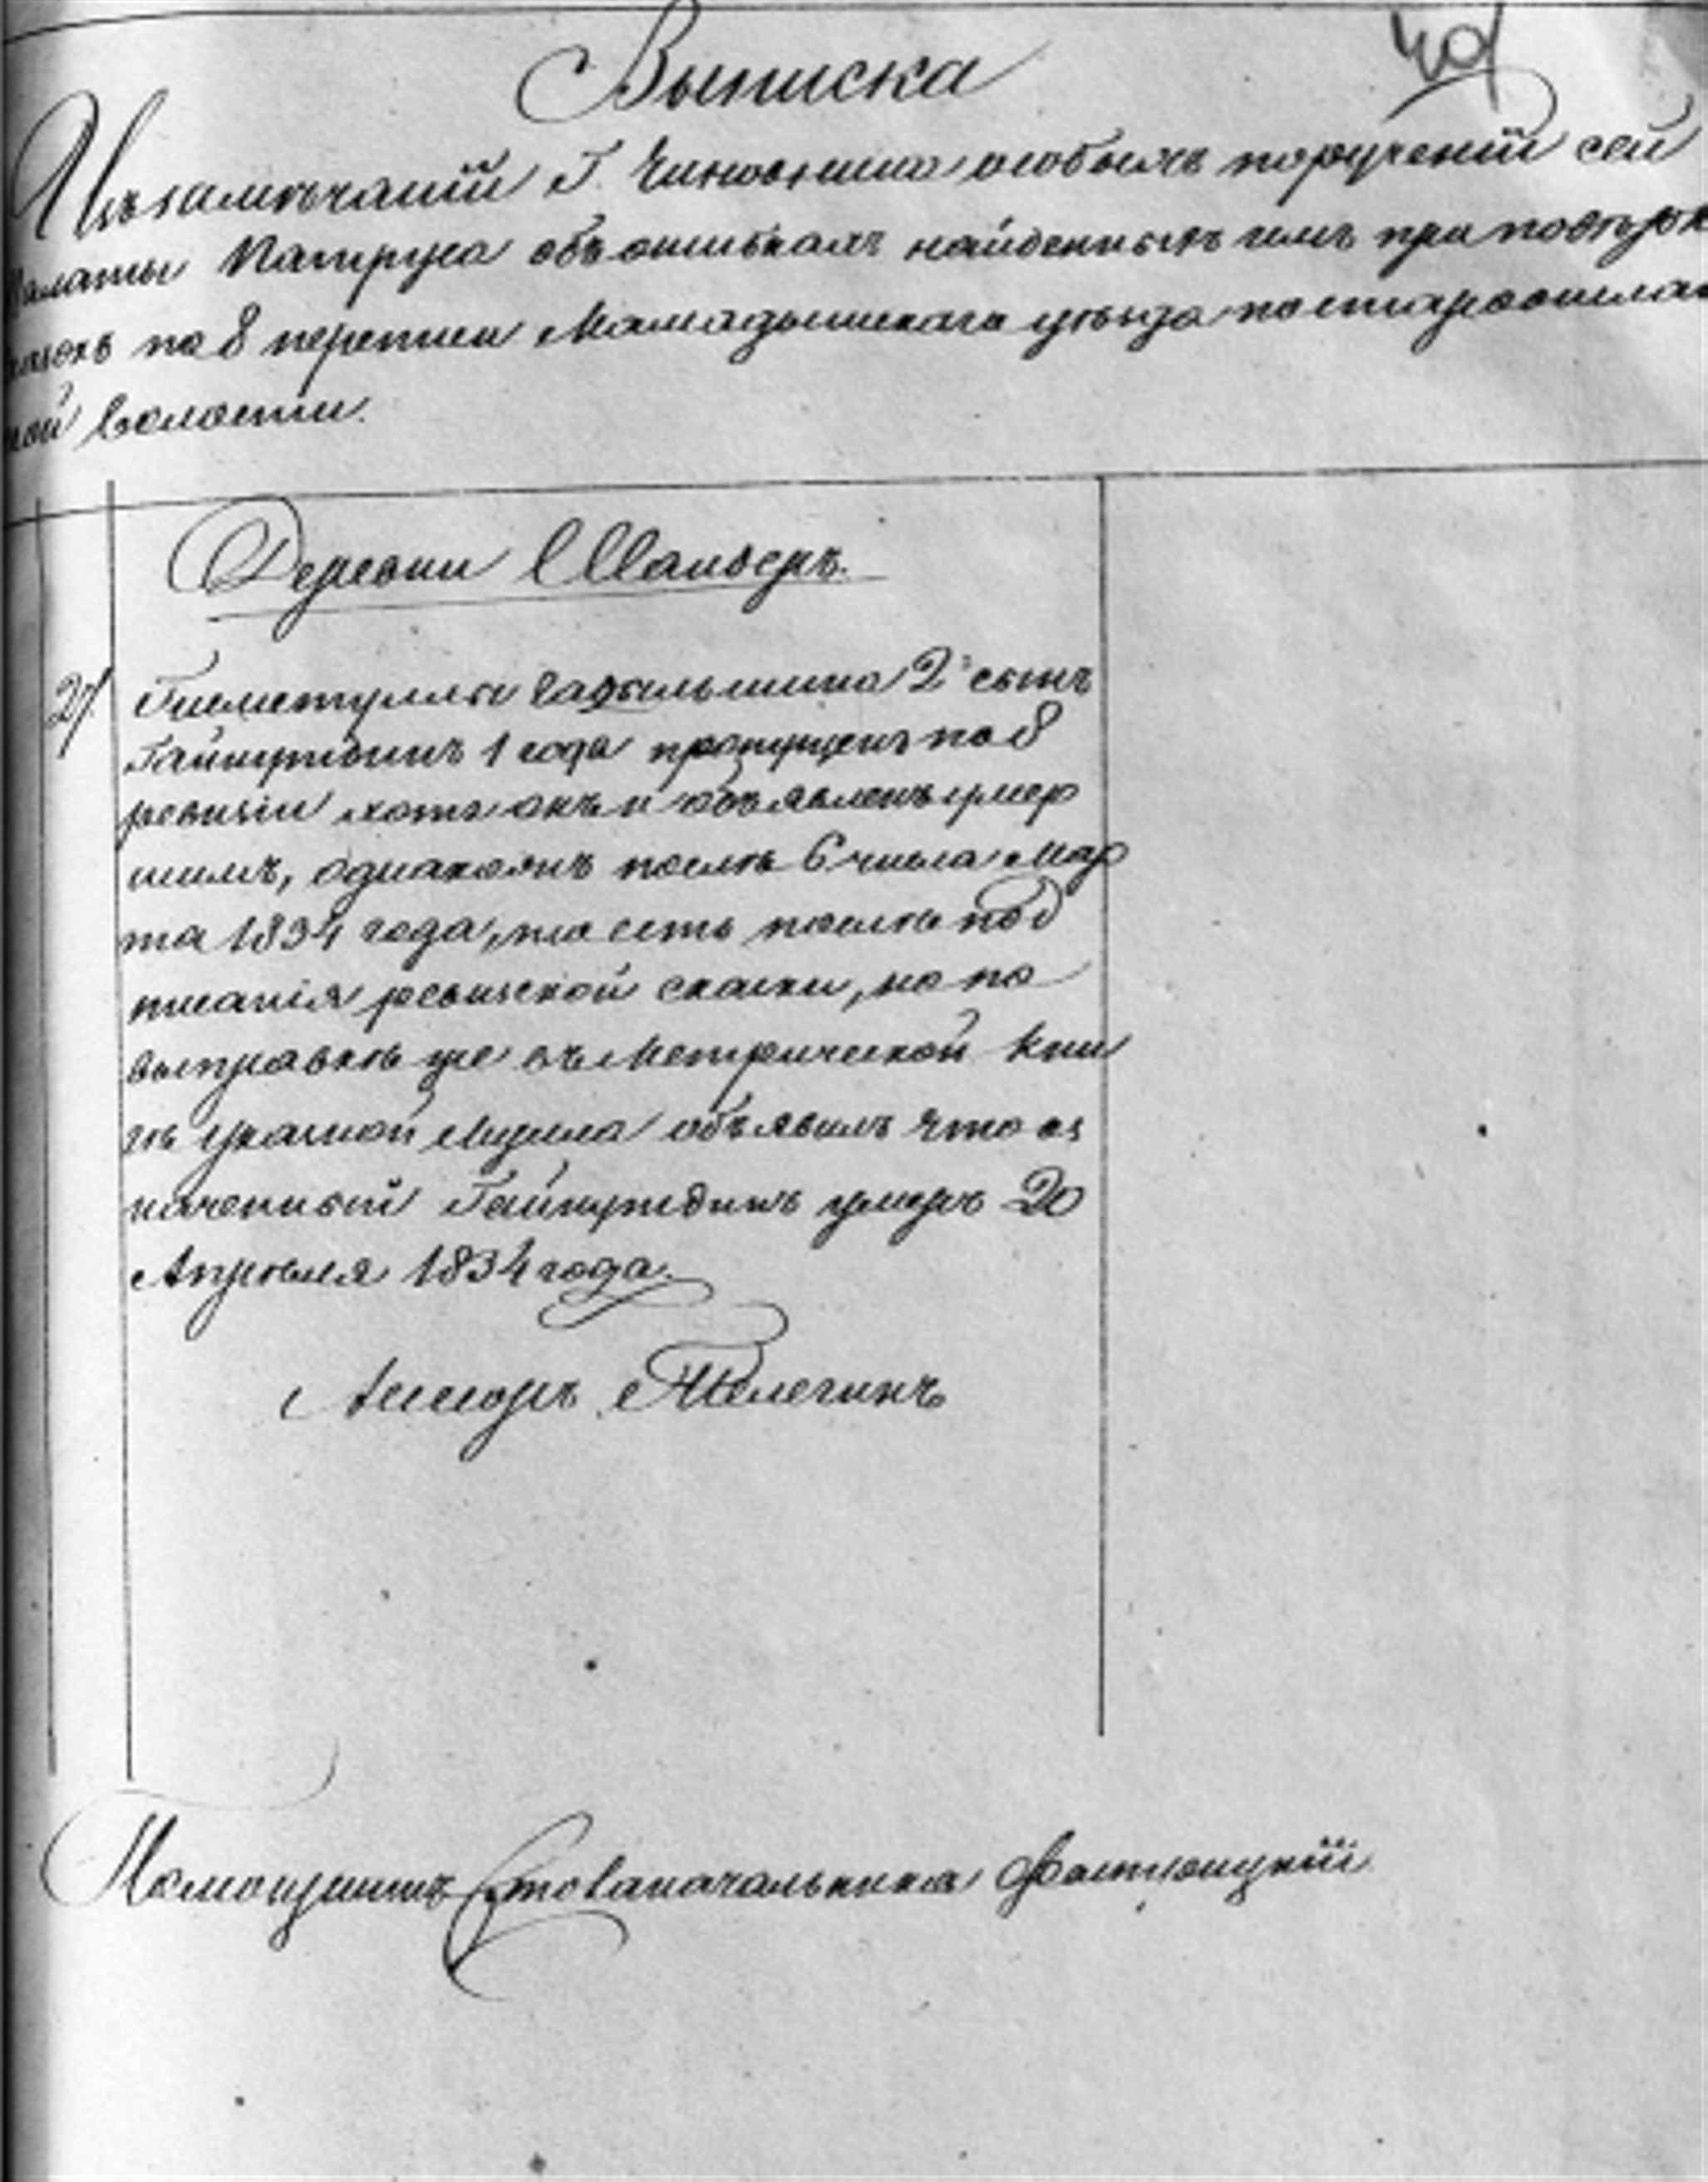 Выписка
Изъ замѣчаній Г. Чиновника особыхъ порученій сей
Палаты Патруса объ ошибкахъ найденныхъ имъ при повѣрк
по 8 переписи Мамадышскаго уѣзда по старо
ной волости.
Деревни Шандеръ.
27 2й сынъ
1 года пропущенъ по 8
ревизіи хотя онъ и объявленъ умер
шимъ, однакожъ послѣ 6 числа Мар
та 1834 года, то есть послѣ под
писанія ревизской сказки, но по
выправкѣ же въ Метрической кни
гѣ указной Мулла объявилъ что оз
наченный умеръ 20
Апрѣля 1834 года.
Асессоръ Телегинъ
Помощникъ Столоначальника